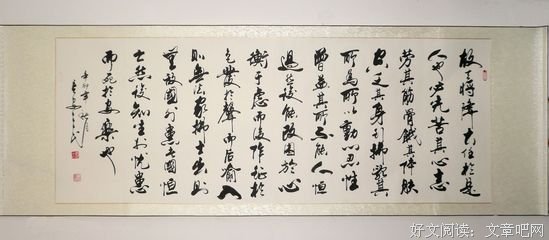 故天將降大任於是
人也必先苦其心志
勞其筋骨餓其體膚
空乏其身行拂亂其
所為所以動心忍性
曾益其所不能人恒
過然後能改困於心
衡于慮而後作征於
色發於聲而後喻入
則無法家拂士出則
無敵國外患者國恒
亡然後知生於憂患
而死於安樂也
辛卯年
好文阅读：文章吧网